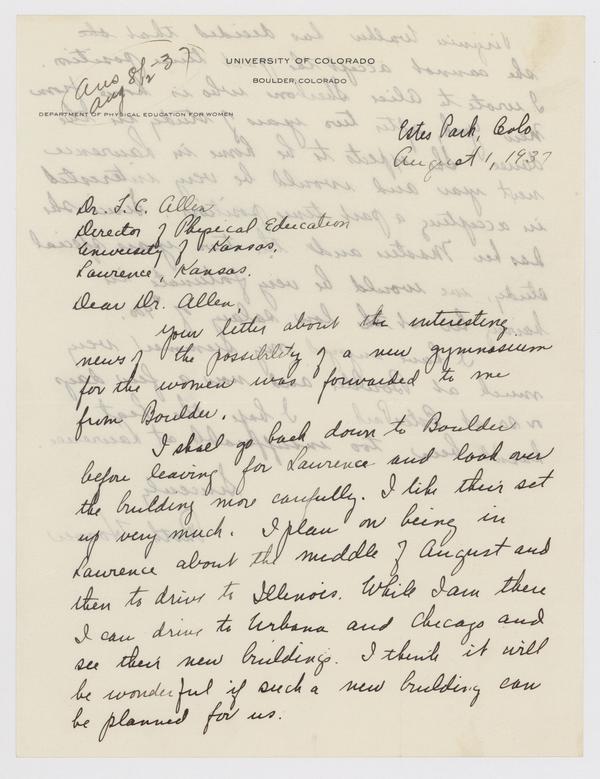 UNIVERSITY OF COLORADO
BOULDER, COLORADO
Ans 8/2-37
Aug
DEPARTMENT OF PHYSICAL EDUCATION FOR WOMEN
Estes Park, Colo
August 1, 1937
Dr. F. C. Allen
Director of Physical Education
University of Kansas,
Lawrence, Kansas.
Dear Dr. Allen,
Your letter about the interesting
news of the possibility of a new gymnasium
for the women was forwarded to me
from Boulder.
I shall go back down to Boulder
before leaving for Lawrence and look over
the building more carefully. I like their set
up very much. I plan on being in
Lawrence about the middle of August and
then to drive to Illinois. While I am there
I can drive to Urbana and Chicago and
see their new buildings. I think it will
be wonderful if such a new building can
be planned for us.